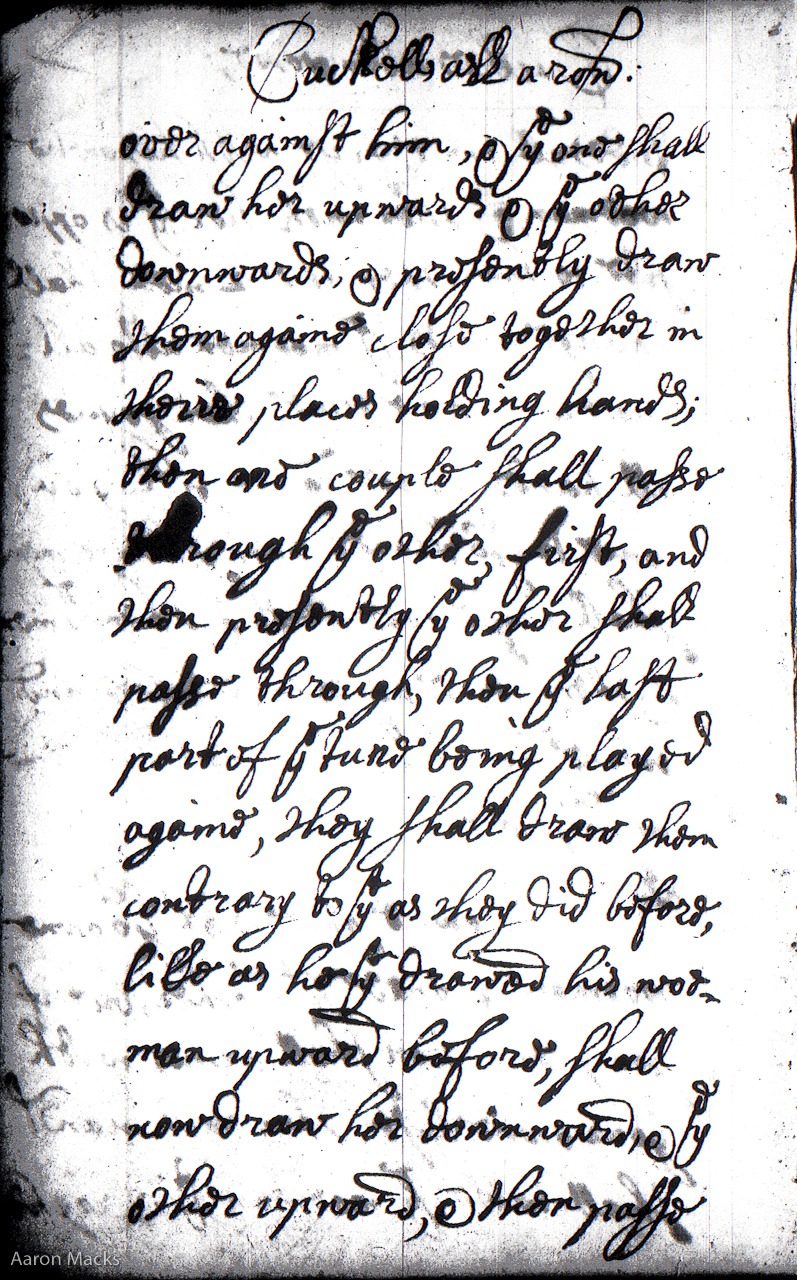 Cuckolls all a row.
over against him, & yt one shall
draw her upwards & ye other
downwards; & presently draw
them againe close together in
theire places holding hands;
then one couple shall passe
through ye other, first, and
then presently ye other shall
passe through, then ye last
part of ye tune being played
againe, they shall draw them
contrary to yt as they did before,
like as he yt drawed his woe-
man upward before, shall
now draw her downward, & ye
other upward, & then passe
Aaron Macks